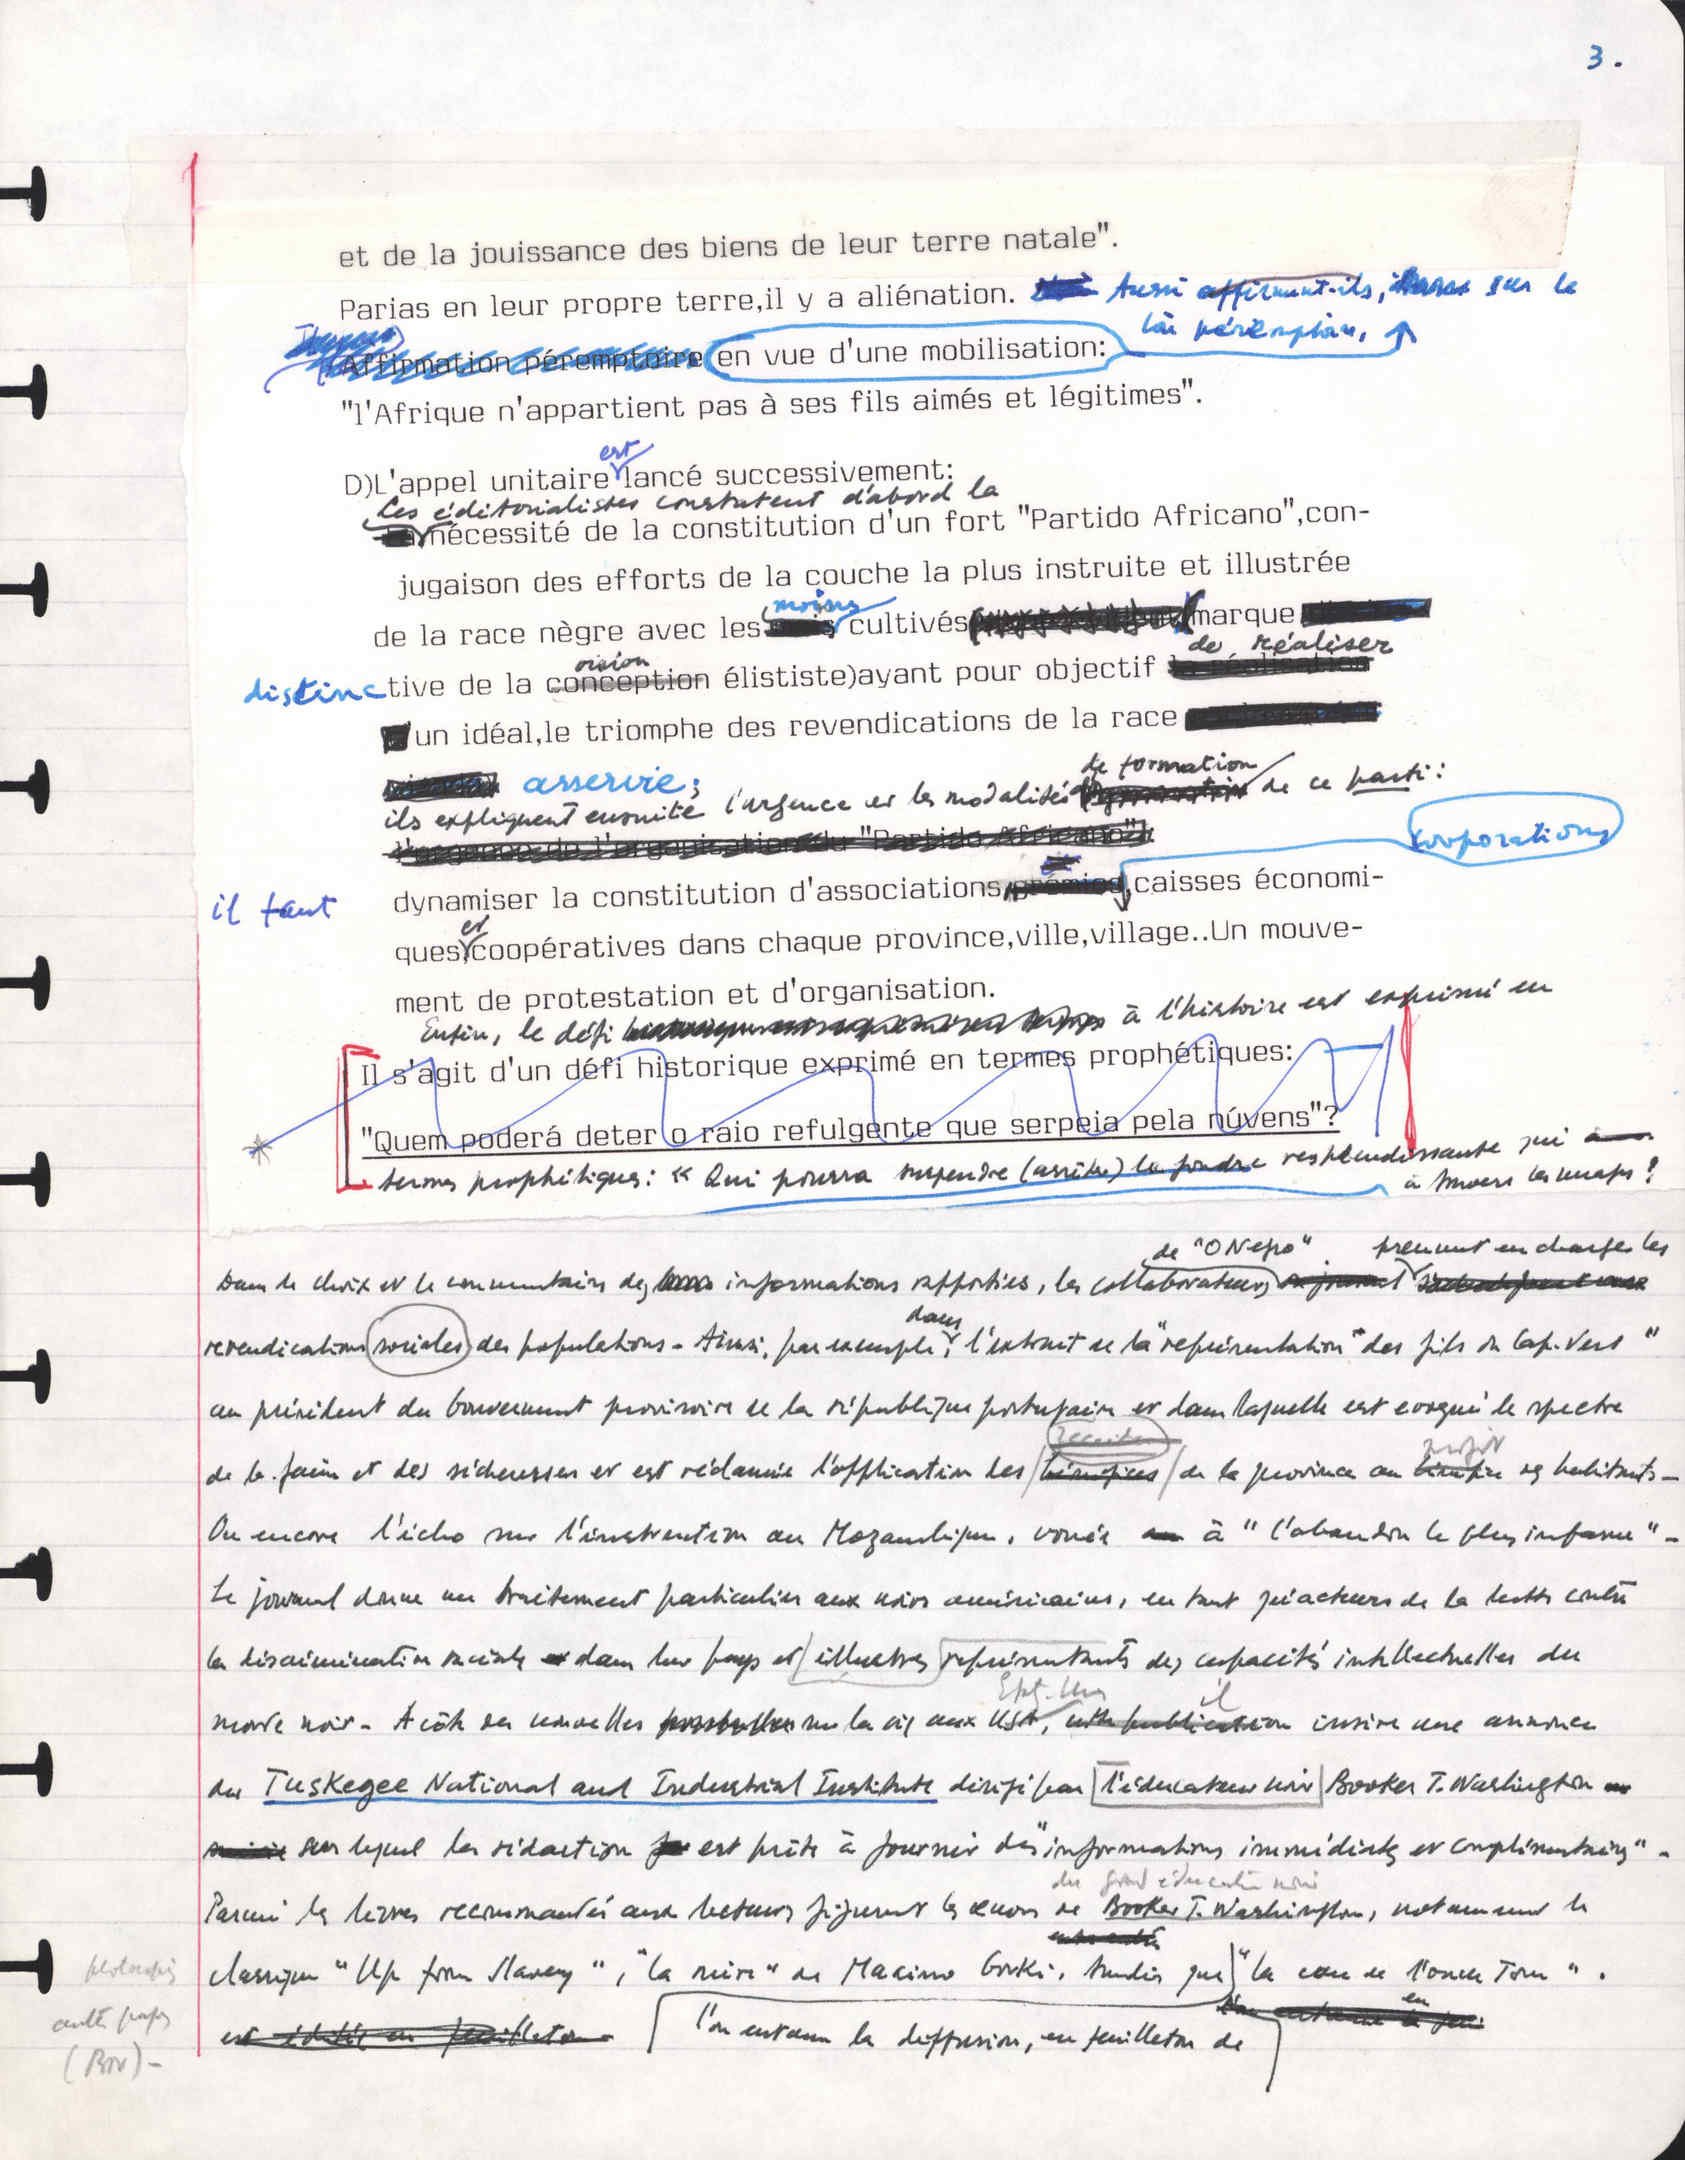 3.
et de la jouissance des biens de leur terre natale".
Parias en leur propre terre,il y a aliénation. Aussi affirment-ils, sur le
ton péremptoire,
Affirmation péremptoire en vue d'une mobilisation:
"l'Afrique n'appartient pas à ses fils aimés et légitimes".
est
D)L'appel unitaire lancé successivement:
Les éditorialistes constatent d'abord la
nécessité de la constitution d'un fort "Partido Africano",con-
jugaison des efforts de la couche la plus instruite et illustrée
moins
de la race nègre avec les cultivés marque
vision de réaliser
distinctive de la conception élististe)ayant pour objectif la réalisation
un idéal,le triomphe des revendications de la race
asservie;
de formation
ils expliquent ensuite l'urgence et les modalités de ce parti:
l'urgence de l'organisation du "Partido Africano"
corporations
il faut dynamiser la constitution d'associations, grémios, caisses économi-
et
ques, coopératives dans chaque province,ville,village..Un mouve-
ment de protestation et d'organisation.
Enfin, le défi à l'histoire est exprimé en
Il s'agit d'un défi historique exprimé en termes prophétiques:
"Quem poderá deter o raio refulgente que serpeia pela núvens"?
termes prophétiques: « Qui pourra suspendre (arrêter) la foudre resplendissante qui
à travers les nuages?
de "O Negro" prennent en charge les
Dans le choix et le commentaire des informations rapportées, les collaborateurs du journal
revendications sociales des populations - Ainsi, par exemple, dans l'extrait de la "représentation" des fils du Cap-Vert "
au président du Gouvernement provisoire de la république portugaise et dans laquelle est evoqué le spectre
recettes profit
de la faim et des sécheresses et est réclamée l'application des bénéfices de la province au bénéfice des habitants -
Ou encore l'écho sur l'instruction au Mozambique, vouée à "l'abandon le plus infame" -
Le journal donne un traitement particulier aux noirs américains, en tant qu'acteurs de la lutte contre
la discrimination raciale dans leur pays et illustres représentants des capacités intellectuelles du
il
monde noir - A côté des nouvelles sur la vie aux USA, cette publication insère une annonce
du Tuskegee National and Industrial Institute dirigé par l'éducateur noir Booker T. Washington
sur lequel la rédaction est prête à fournir des "informations immédiates et complémentaires" -
du grand éducateur noir
Parmi les livres recommandés aux lecteurs figurent les œuvres de Booker T. Washington, notamment le
classique "Up from Slavery", "la mère" de Maximo Gorki, tandis que "la case de l'oncle Tom".
est édité en feuilleton l'on entame la diffusion, en feuilleton de